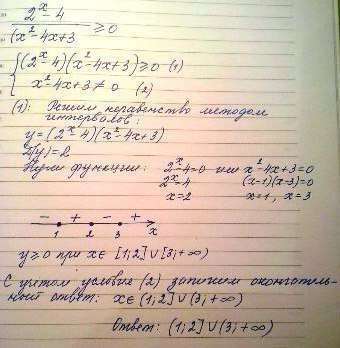 2ˣ-4
(x²-4x+3 ≥0
{(2ˣ-4)(x²-4x+3)≥0 (1)
x²-4x+3≠0 (2)
(1): Решим неравенство методом
интервалов:
y=(2ˣ-4)(x²-4x+3)
D(y)=R
Нули функции: 2ˣ-4=0 или x²-4x+3=0
2ˣ=4 (x-1)(x-3)=0
x=2 x=1, x=3
- + - +
1 2 3 x
y≥0 при x∈ [1;2]∪[3;+∞)
С учетом условие (2) запишем окончатель-
ный ответ: x∈(1;2]∪(3;+∞)
Ответ: (1;2]∪(3;+∞)